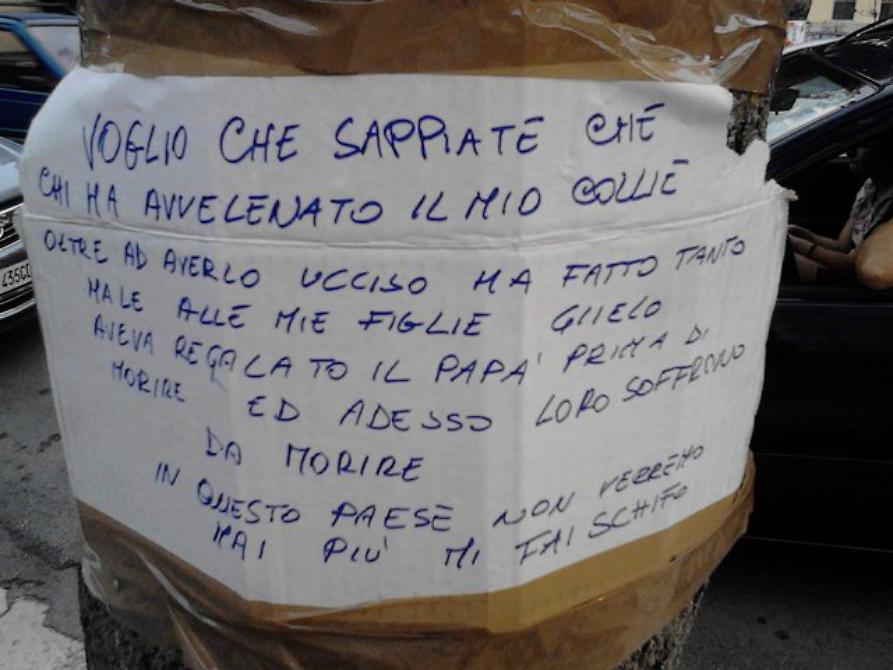 VOGLIO CHE SAPPIATE CHE
CHI HA AVVELENATO IL MIO COLLIE
OLTRE AD AVERLO UCCISO HA FATTO TANTO
MALE ALLE MIE FIGLIE GLIELO
AVEVA REGALATO IL PAPA' PRIMA DI
MORIRE ED ADESSO LORO SOFFRONO
DA MORIRE
IN QUESTO PAESE NON VERREMO
MAI PIU' MI FAI SCHIFO